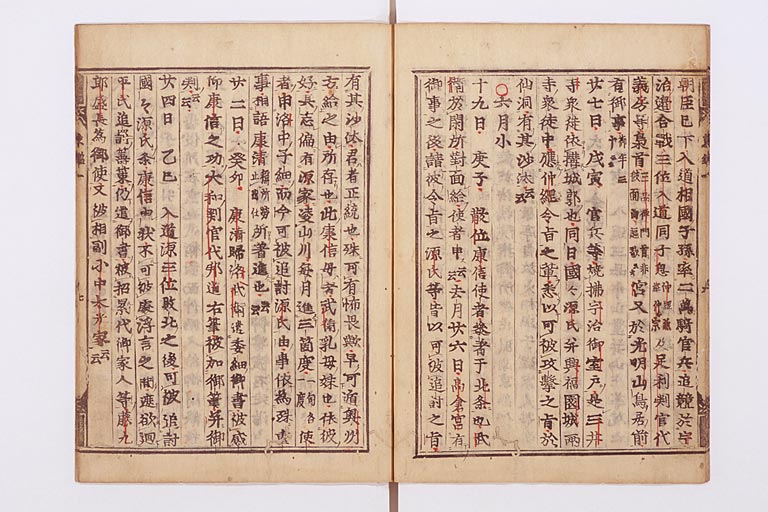 朝臣已下入道相國子孫率二萬騎官兵追競於宇
治邊合戰三位入道同子息仲綱兼綱仲宗及足利判官代
義房等梟首三品禪門首非彼面由謳歌云云宮又於光明山鳥居前
有御事御年三十云云
廿七日 戊寅 官兵等燒拂宇治御室戸是三井
寺衆徒依搆城郭也同日國々源氏并興福園城両
寺衆徒中應件令旨之輩悉以可被攻撃之旨於
仙洞有其沙汰云云
六月小
十九日 庚子 散位康信使者參著于北条也武
衛於閑所對面給使者申云去月廿六日髙倉宮有
御事之後請彼令旨之源氏等皆以可被追討之旨
有其沙汰君者正統也殊可有怖畏歟早可遁奥州
方給之由所存也此康信母者武衛乳母妹也依彼
好其志偏有源家凌山川毎月進三箇度一旬各一度使
者申洛中子細而今可被追討源氏由事依爲殊重
事相語康清
廿二日 癸卯 康清歸洛武衛遣委細御書被感
仰康信之功大和判官代邦道右筆被加御筆并御
判云云
廿四日 乙巳 入道源三位敗北之後可被追討
國々源氏条康信申状不可被處浮言之間遮欲廻
平氏追討籌策仍遣御書被招累代御家人等藤九
郎盛長爲御使又被相副小中太光家云云